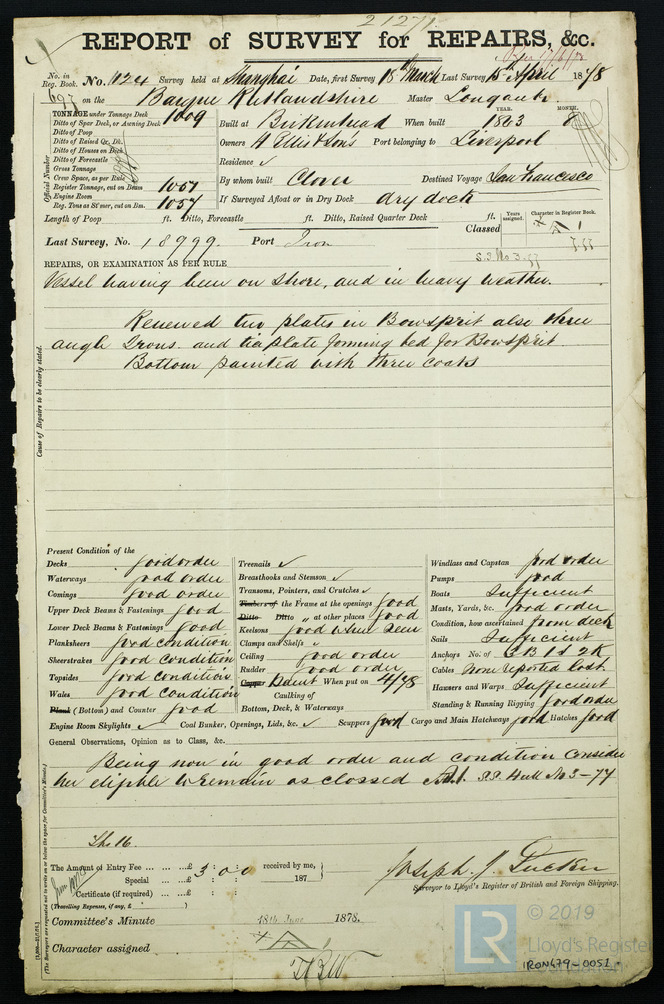 21271
REPORT of SURVEY for REPAIRS, &c.
No. in Reg. Book. No. 1124 Survey held at Shanghai Date, first Survey 18th March Last Survey 15th April 1878
697 on the Barque Rutlandshire Master
TONNAGE under Tonnage Deck 1009
Ditto of Spar Deck, or Awning Deck
Ditto of Poop
Ditto of Raised Qr. Dk.
Ditto of Houses on Deck
Ditto of Forecastle
Gross Tonnage
Crew Space, as per Rule
Register Tonnage, cut on Beam 1057
Engine Room
Reg. Tons as St'mer, cut on Bm. 1057
Official Number
Built at Birkenhead When built YEAR. 1863 MONTH. 8
Owners H Ellis & Sons Port belonging to Liverpool
Residence ✓
By whom built Clover Destined Voyage San Francesco
If Surveyed Afloat or in Dry Dock dry dock
Length of Poop ft. Ditto, Forecastle ft. Ditto, Raised Quarter Deck ft.
Classed Years assigned. Character in Register Book.
Last Survey, No. 18999. Port Iron
S.S. No 3-77
REPAIRS, OR EXAMINATION AS PER RULE
Vessel having been on shore, and in heavy weather.
Renewed two plates in Bowsprit also three
angle Irons. and tieplate forming bed for Bowsprit
Bottom painted with three coats
Cause of Repairs to be clearly stated.
Present Condition of the
Decks good order
Waterways good order
Comings good order
Upper Deck Beams & Fastenings good
Lower Deck Beams & Fastenings good
Planksheers good condition
Sheerstrakes good condition
Topsides good condition
Wales good condition
Plank (Bottom) and Counter good
Engine Room Skylights ✓ Coal Bunker, Openings, Lids, &c. ✓ Scuppers good Cargo and Main Hatchways good Hatches good
Treenails ✓
Breasthooks and Stemson ✓
Transoms, Pointers, and Crutches ✓
Timbers of the Frame at the openings good
Ditto Ditto „ at other places good
Keelsons good when seen
Clamps and Shelfs „
Ceiling good order
Rudder good order
Copper Paint When put on 4/78
Caulking of
Bottom, Deck, & Waterways
Windlass and Capstan good order
Pumps good
Boats Sufficient
Masts, Yards, &c. good order
Condition, how ascertained from deck
Sails Sufficient
Anchors No. of 3 B 1 S 2 K
Cables None reported lost
Hawsers and Warps Sufficient
Standing & Running Rigging good order
General Observations, Opinion as to Class, &c.
Being now in good order and condition consider
her eligible to remain as classed A.1. S.S. Hull No 3-77
The Amount of Entry Fee ... ... £ 3 : 0 : 0 received by me,
Special ... ... £ : : 187
Certificate (if required) ... £ : :
(Travelling Expenses, if any, £ )
Joseph J Tucker
Surveyor to Lloyd's Register of British and Foreign Shipping.
Committee's Minute 18th June 1878.
Character assigned
(The Surveyors are requested not to write on or below the space for Committee's Minute.)
LR
© 2019
Lloyd's Register
Foundation
IRON479-0051